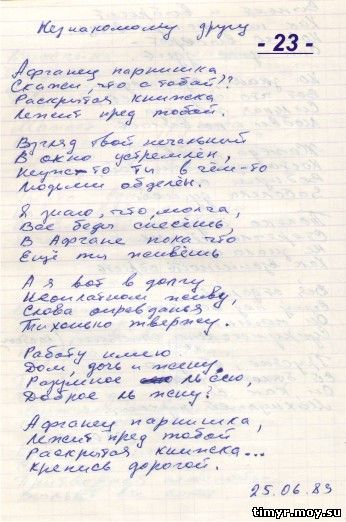 Незнакомому другу
- 23 -
Афганец парнишка
Скажи, что с тобой??
Раскрытая книжка
Лежит пред тобой.
Взгляд твой печальный
В окно устремлён,
Неужто ты в чём-то
Людьми обделён.
Я знаю, что, молча,
Все беды снесёшь,
В Афгане пока что
Ещё ты живёшь
А я вот в долгу
Неоплатном живу,
Слова оправданья
Тихонько твержу.
Работу имею,
Дом, дочь и жену,
Разумное ль сею,
Доброе ль жну?
Афганец парнишка,
Лежит пред тобой
Раскрытая книжка...
Крепись дорогой.
25.06.89
timyr.moy.su